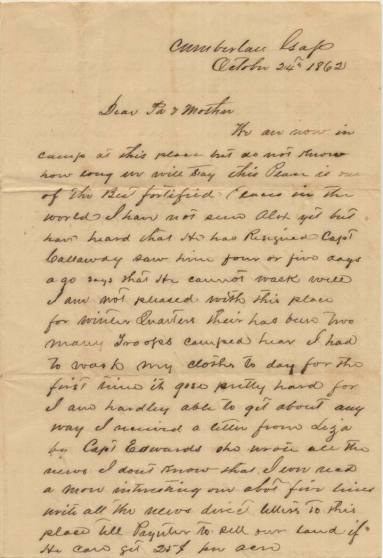 Cumberlan Gap
October 24th 1862
Dear Pa & Mother
We are now in
camp at this place but do not know
how long we will stay this Place is one
of the Best fortified Places in the
world I have not seen Alex yet but
have heard that He has Resigned Capt
Callaway saw him four or five days
ago says that He cannot walk well
I am not pleased with this place
for winter Quarters their has been two
many Troops camped hear I had
to wash my clothes to day for the
first time it goes pretty hard for
I am hardley able to get about any
way I received a letter from Liza
by Capt Edwards she wrote all the
news I dont know that I ever read
a more interesting one about five lines
with all the news direct letters to this
place tell Paynter to sell our land if
He can get 25$ an acre